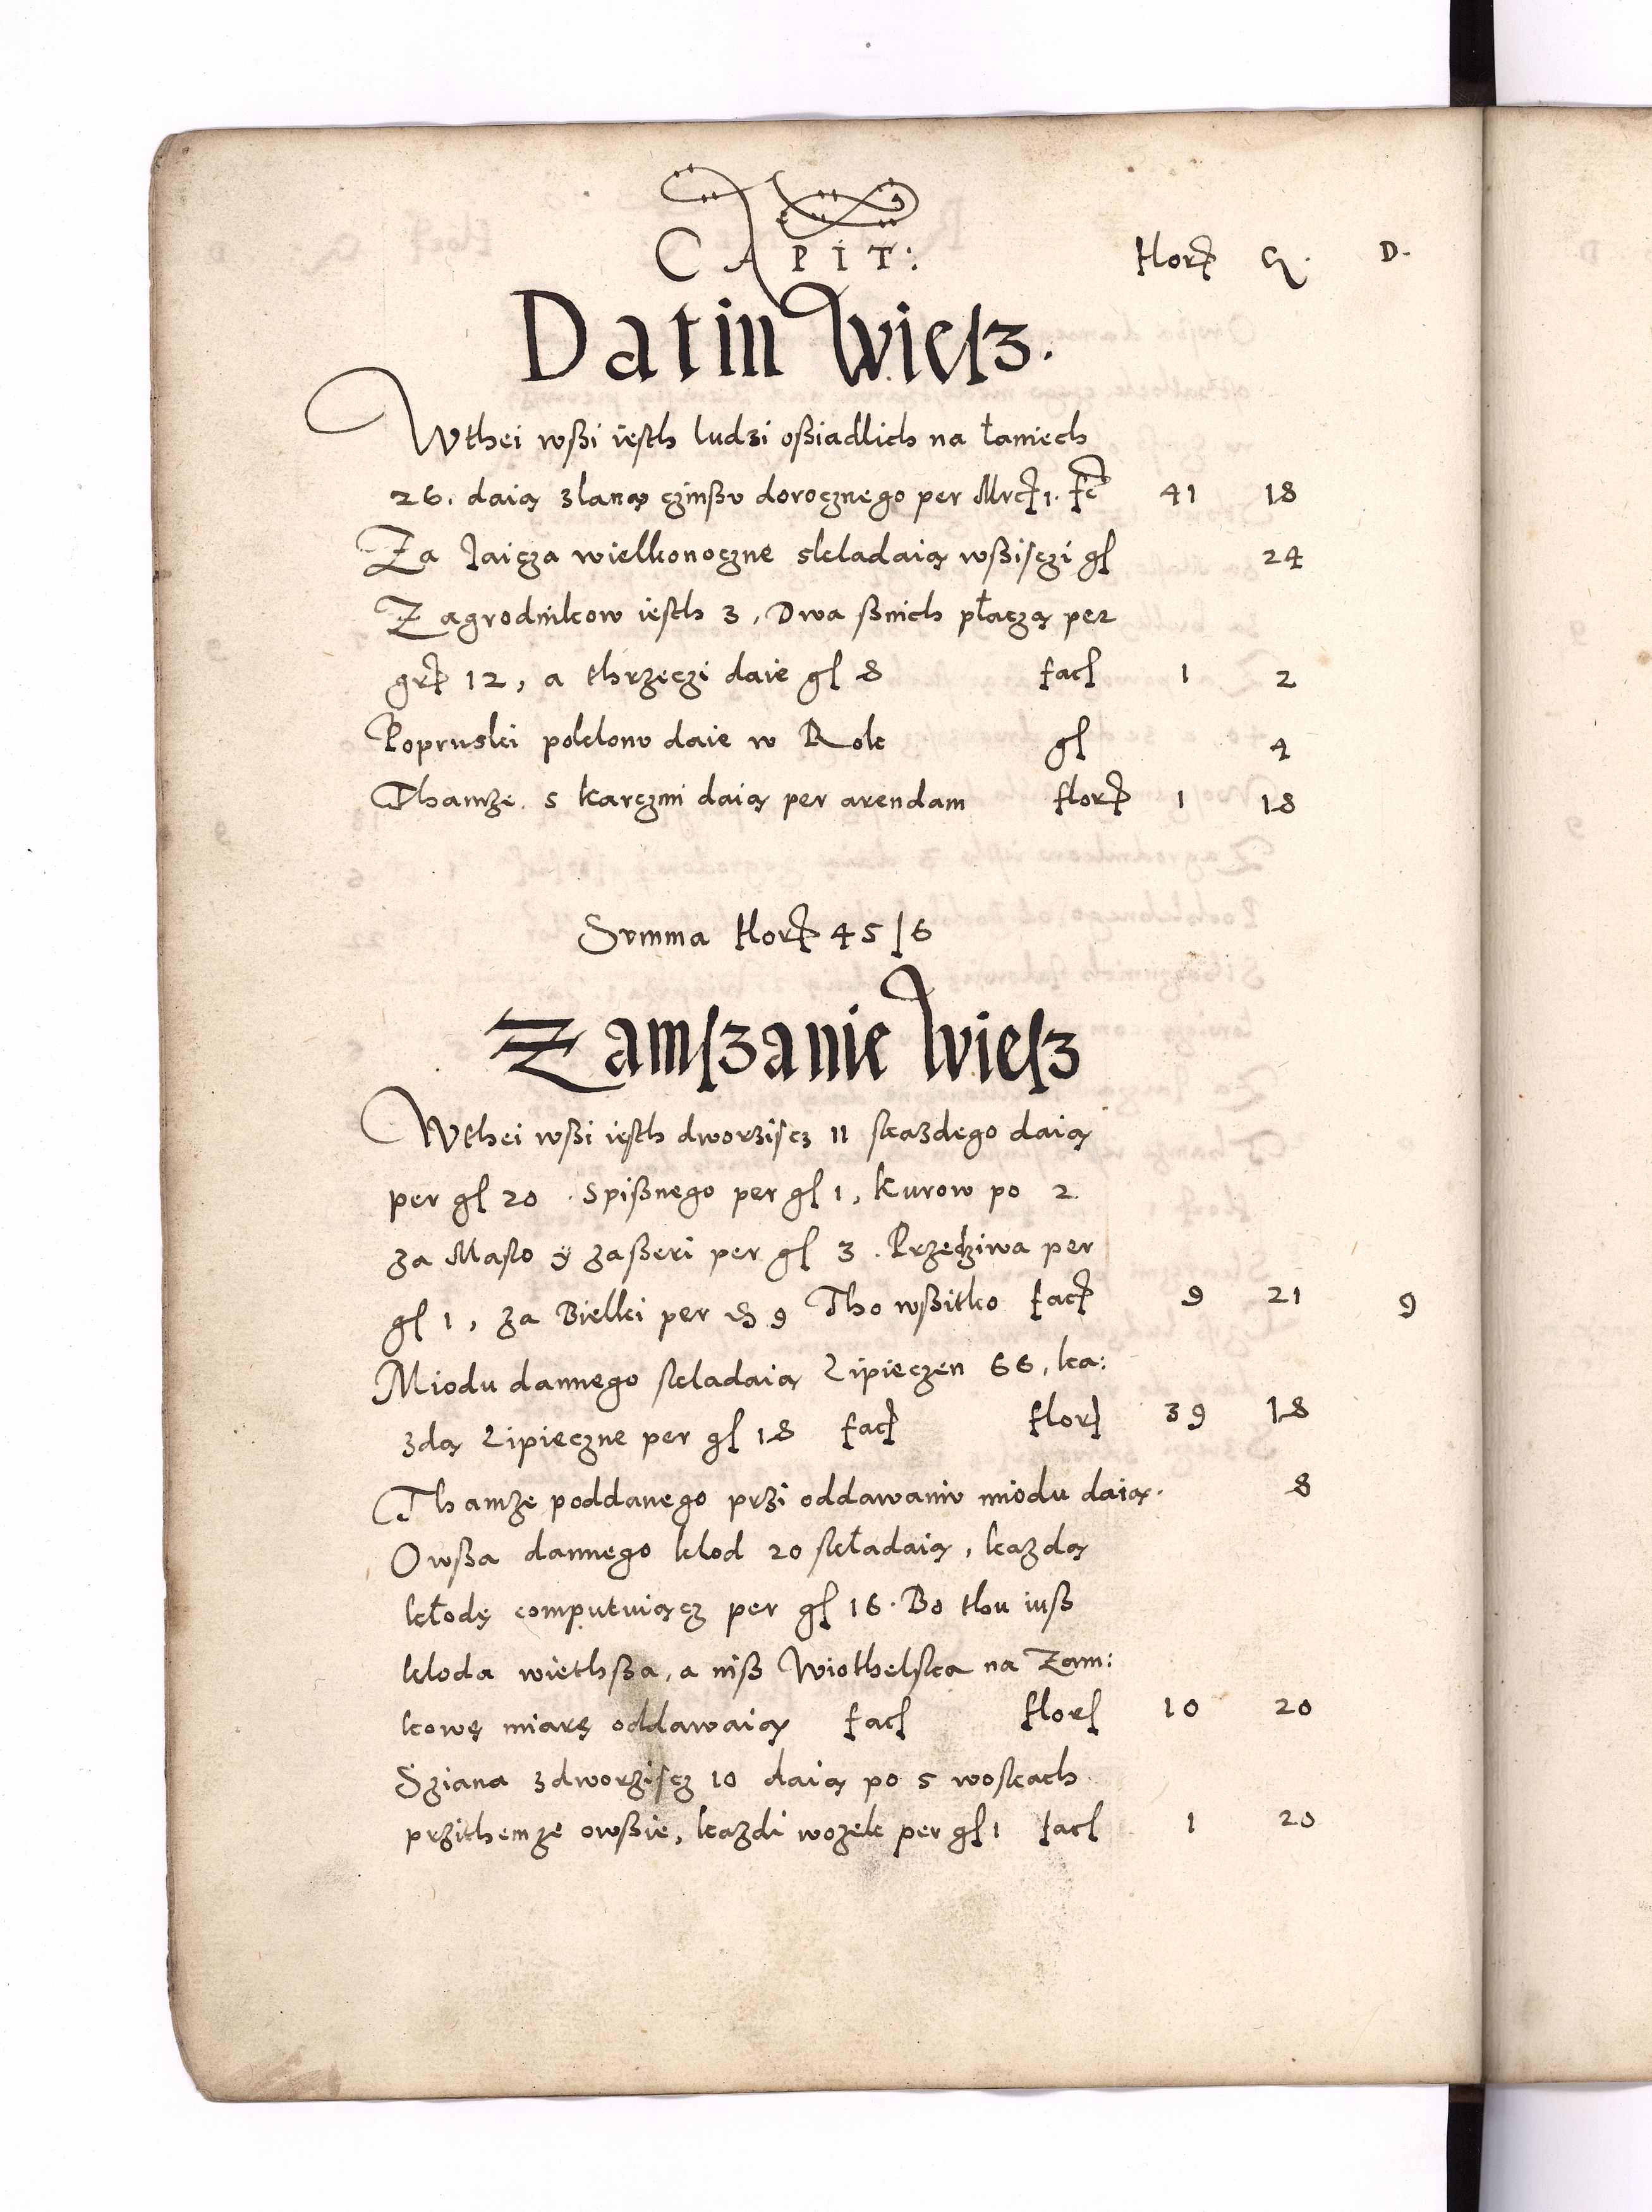 CAPIT: flor G. D.
Datin Wiesz.
Wthei wßi iesth ludzi oßiadlich na łaniech
26. daią zlanų czinßv dorocznego per Mrc 1. fc 41 18
Za Jaicza wielkonoczne skladaią wßisczi gſ 24
Zagrodnikow iesth 3, Dwa ßnich płaczą per
gr 12, a thrzeczi daie gſ 8 facſ 1 2
Popruski poklonv daie w Rok gſ 4
Thamże s karczmi daią per arendam flor 1 18
Svmma flor 45 | 6
Zamszanie Wiesz
Wthei wßi iesth dworziscz 11 skazdego daią
per gſ 20 . Spißnego per gſ 1, kurow po 2
za Maslo ÿ zaßeri per gſ 3 . Przędziwa per
gſ 1, za Bielki per 9 Tho wßitko fac 9 21 9
Miodu dannego skladaią Lipieczen 66, ka:
zdą Lipieczne per gſ 18 fac flor 39 18
Thamże poddanego przi oddawaniv miodu daią. 8
Owßa dannego klod 20 składaią, kazdą
kłodę computuiącz per gſ 16. Bo thu iuß
kloda wiethßa, a niß Wiothelska na Zam:
kowę miarę oddawaią facſ florſ 10 20
Sziana zdworziscz 10 daią po 5 woskach
przithemże owßie, kazdi wozek per gſ 1 facſ 1 20